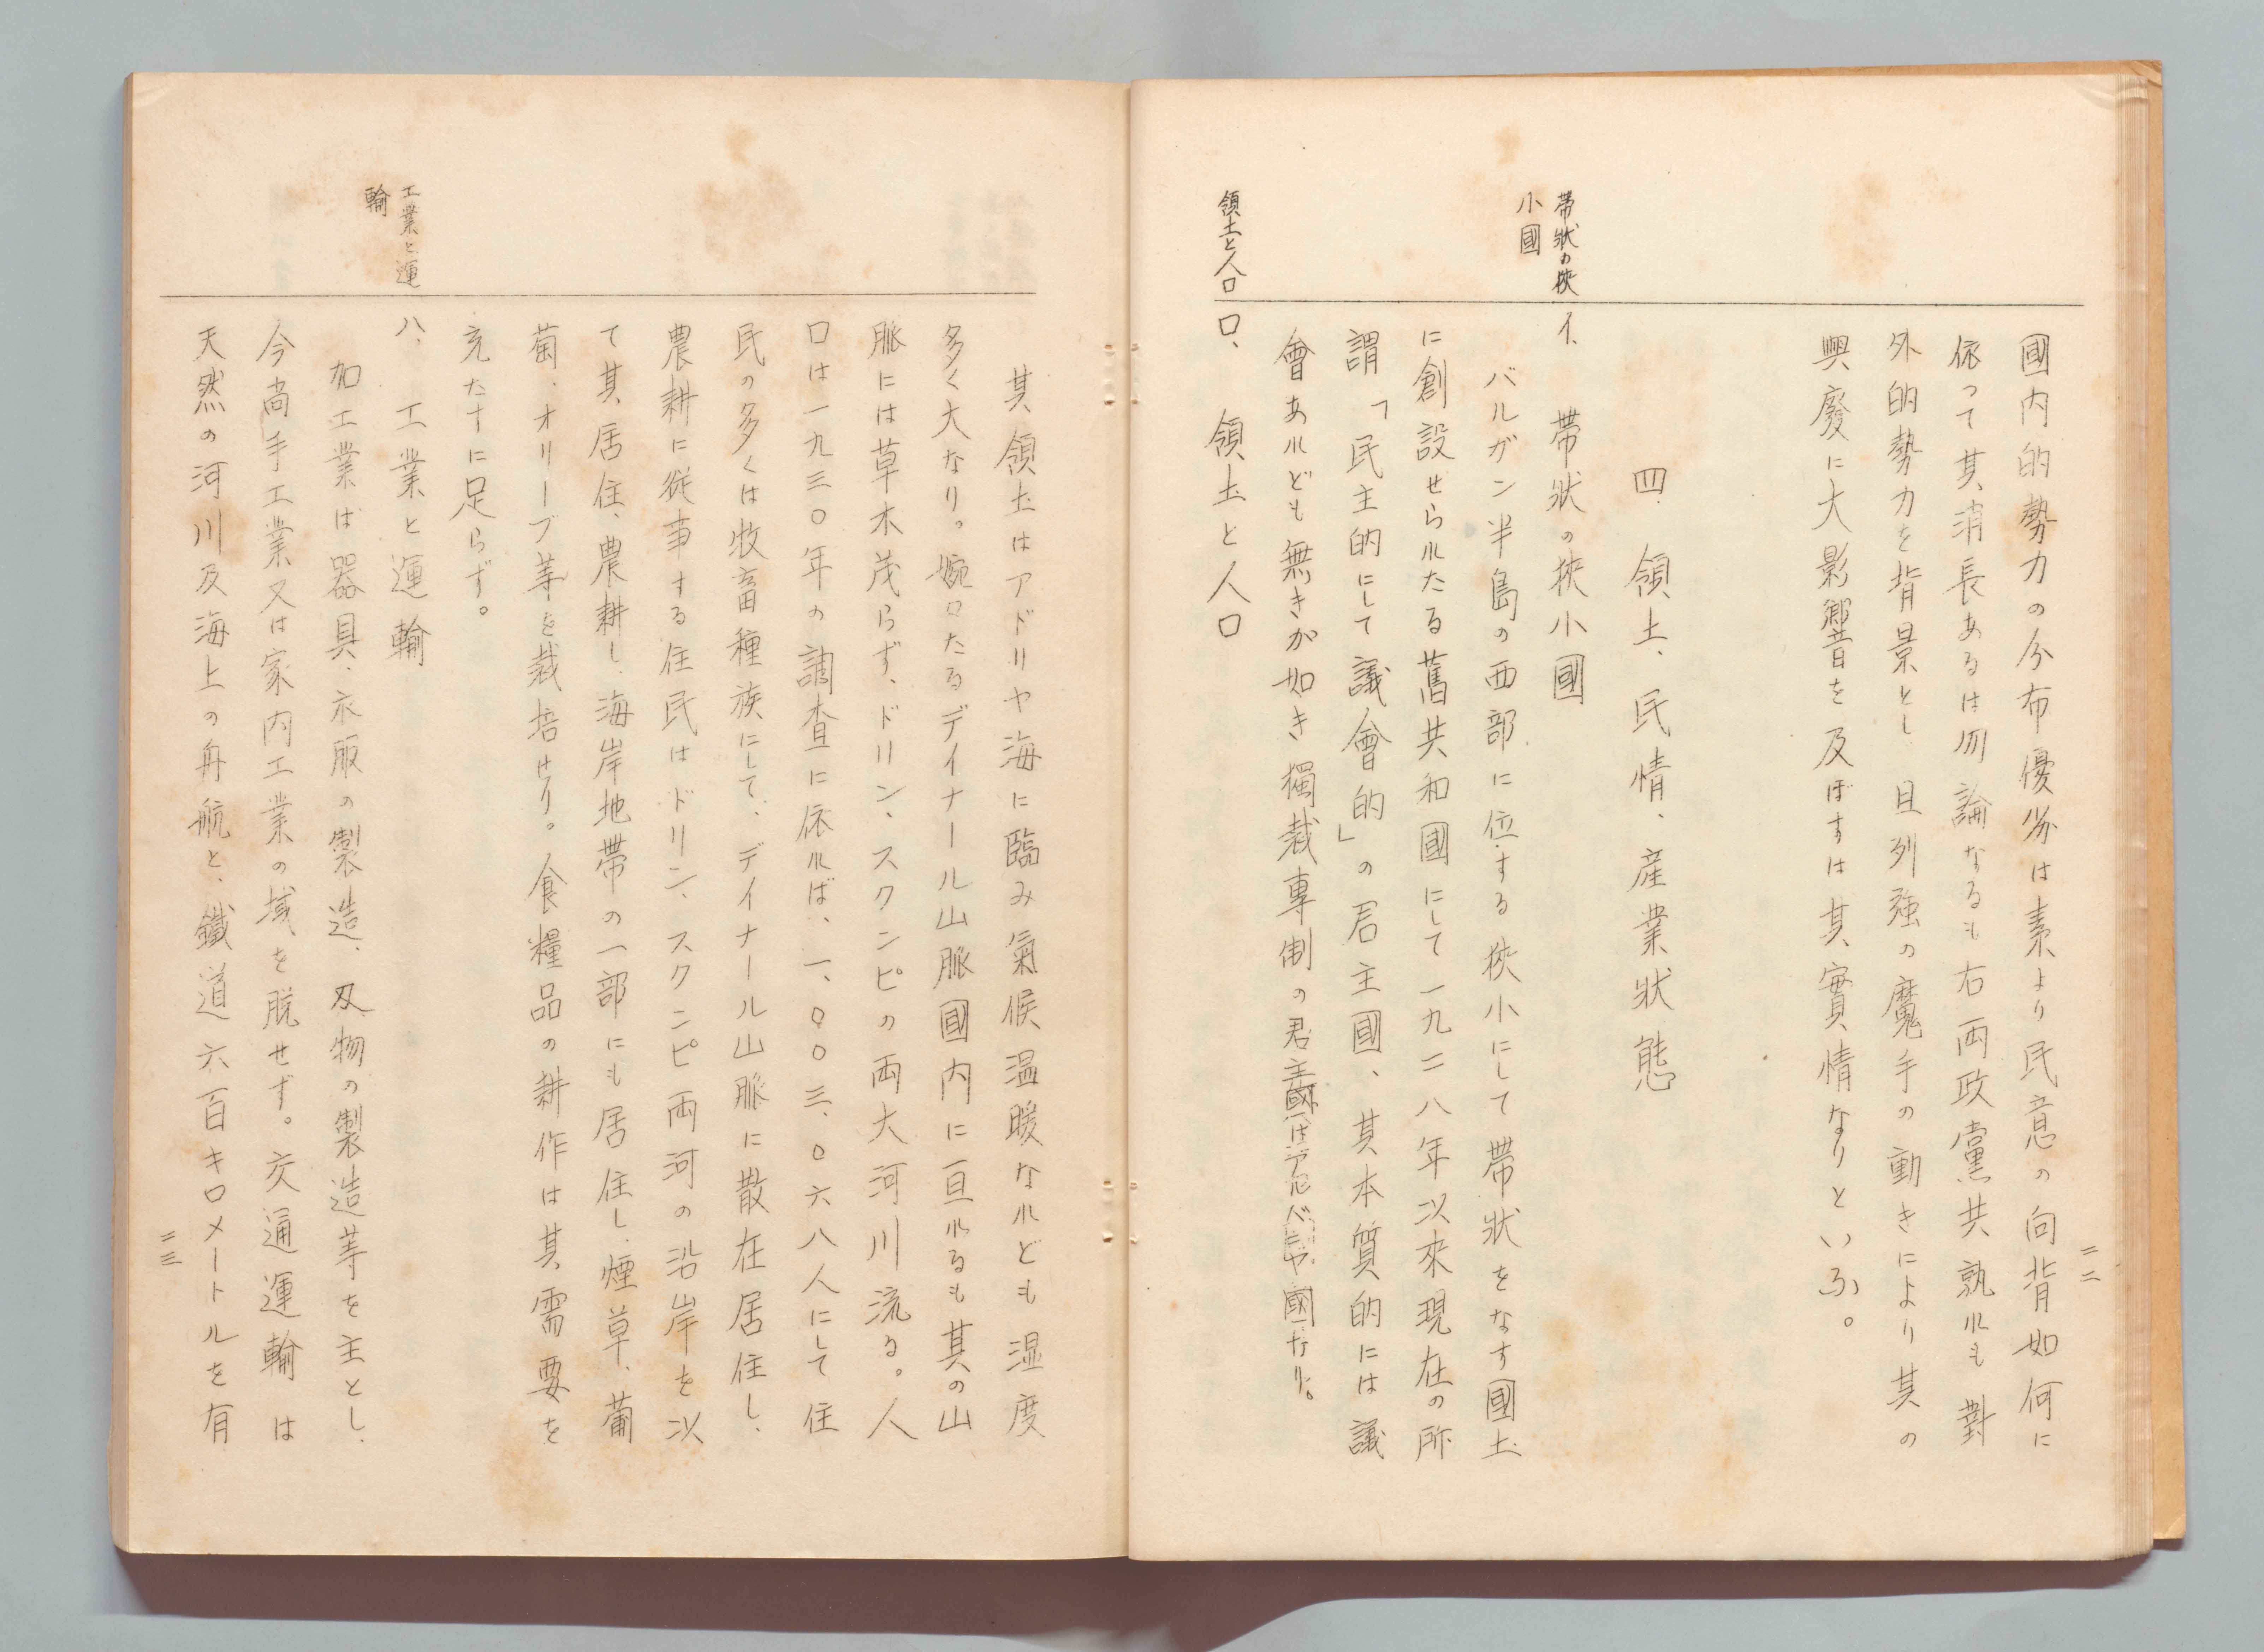 二二
國内的勢力の分布優劣は素より民意の向背如何に
依つて其消長あるは勿論なるも右両政黨共孰れも對
外的勢力を背景とし且列強の魔手の動きにより其の
興廢に大影響を及ぼすは其實情なりといふ。
四、領土、民情、産業状態
帶狀の狹
小國
イ、帶狀の狹小國
バルガン半島の西部に位する狹小にして帶狀をなす國土
に創設せられたる舊共和國にして一九二八年以來現在の所
謂「民主的にして議會的」の君主國、其本質的には議
會あれども無きが如き獨裁專制の君主國はアルバニヤ國なり。
領土と人口
ロ、領土と人口
其領土はアドリヤ海に臨み氣候温暖なれども湿度
多く大なり。蜿々たるデイナール山脈國内に亘れるも其の山
脈には草木茂らず、ドリン、スクンピの両大河川流る。人
口は一九三〇年の調査に依れば、一、〇〇三、〇六八人にして住
民の多くは牧畜種族にして、デイナール山脈に散在居住し、
農耕に従事する住民はドリン、スクンピ両河の沿岸を以
て其居住、農耕し、海岸地帶の一部にも居住し、煙草、葡
萄、オリーブ等を栽培せり。食糧品の耕作は其需要を
充たすに足らず。
工業と運
輸
ハ、工業と運輸
加工業は器具、衣服の製造、刄物の製造等を主とし、
今尚手工業又は家内工業の域を脱せず。交通運輸は
天然の河川及海上の舟航と、鐵道六百キロメートルを有
二三